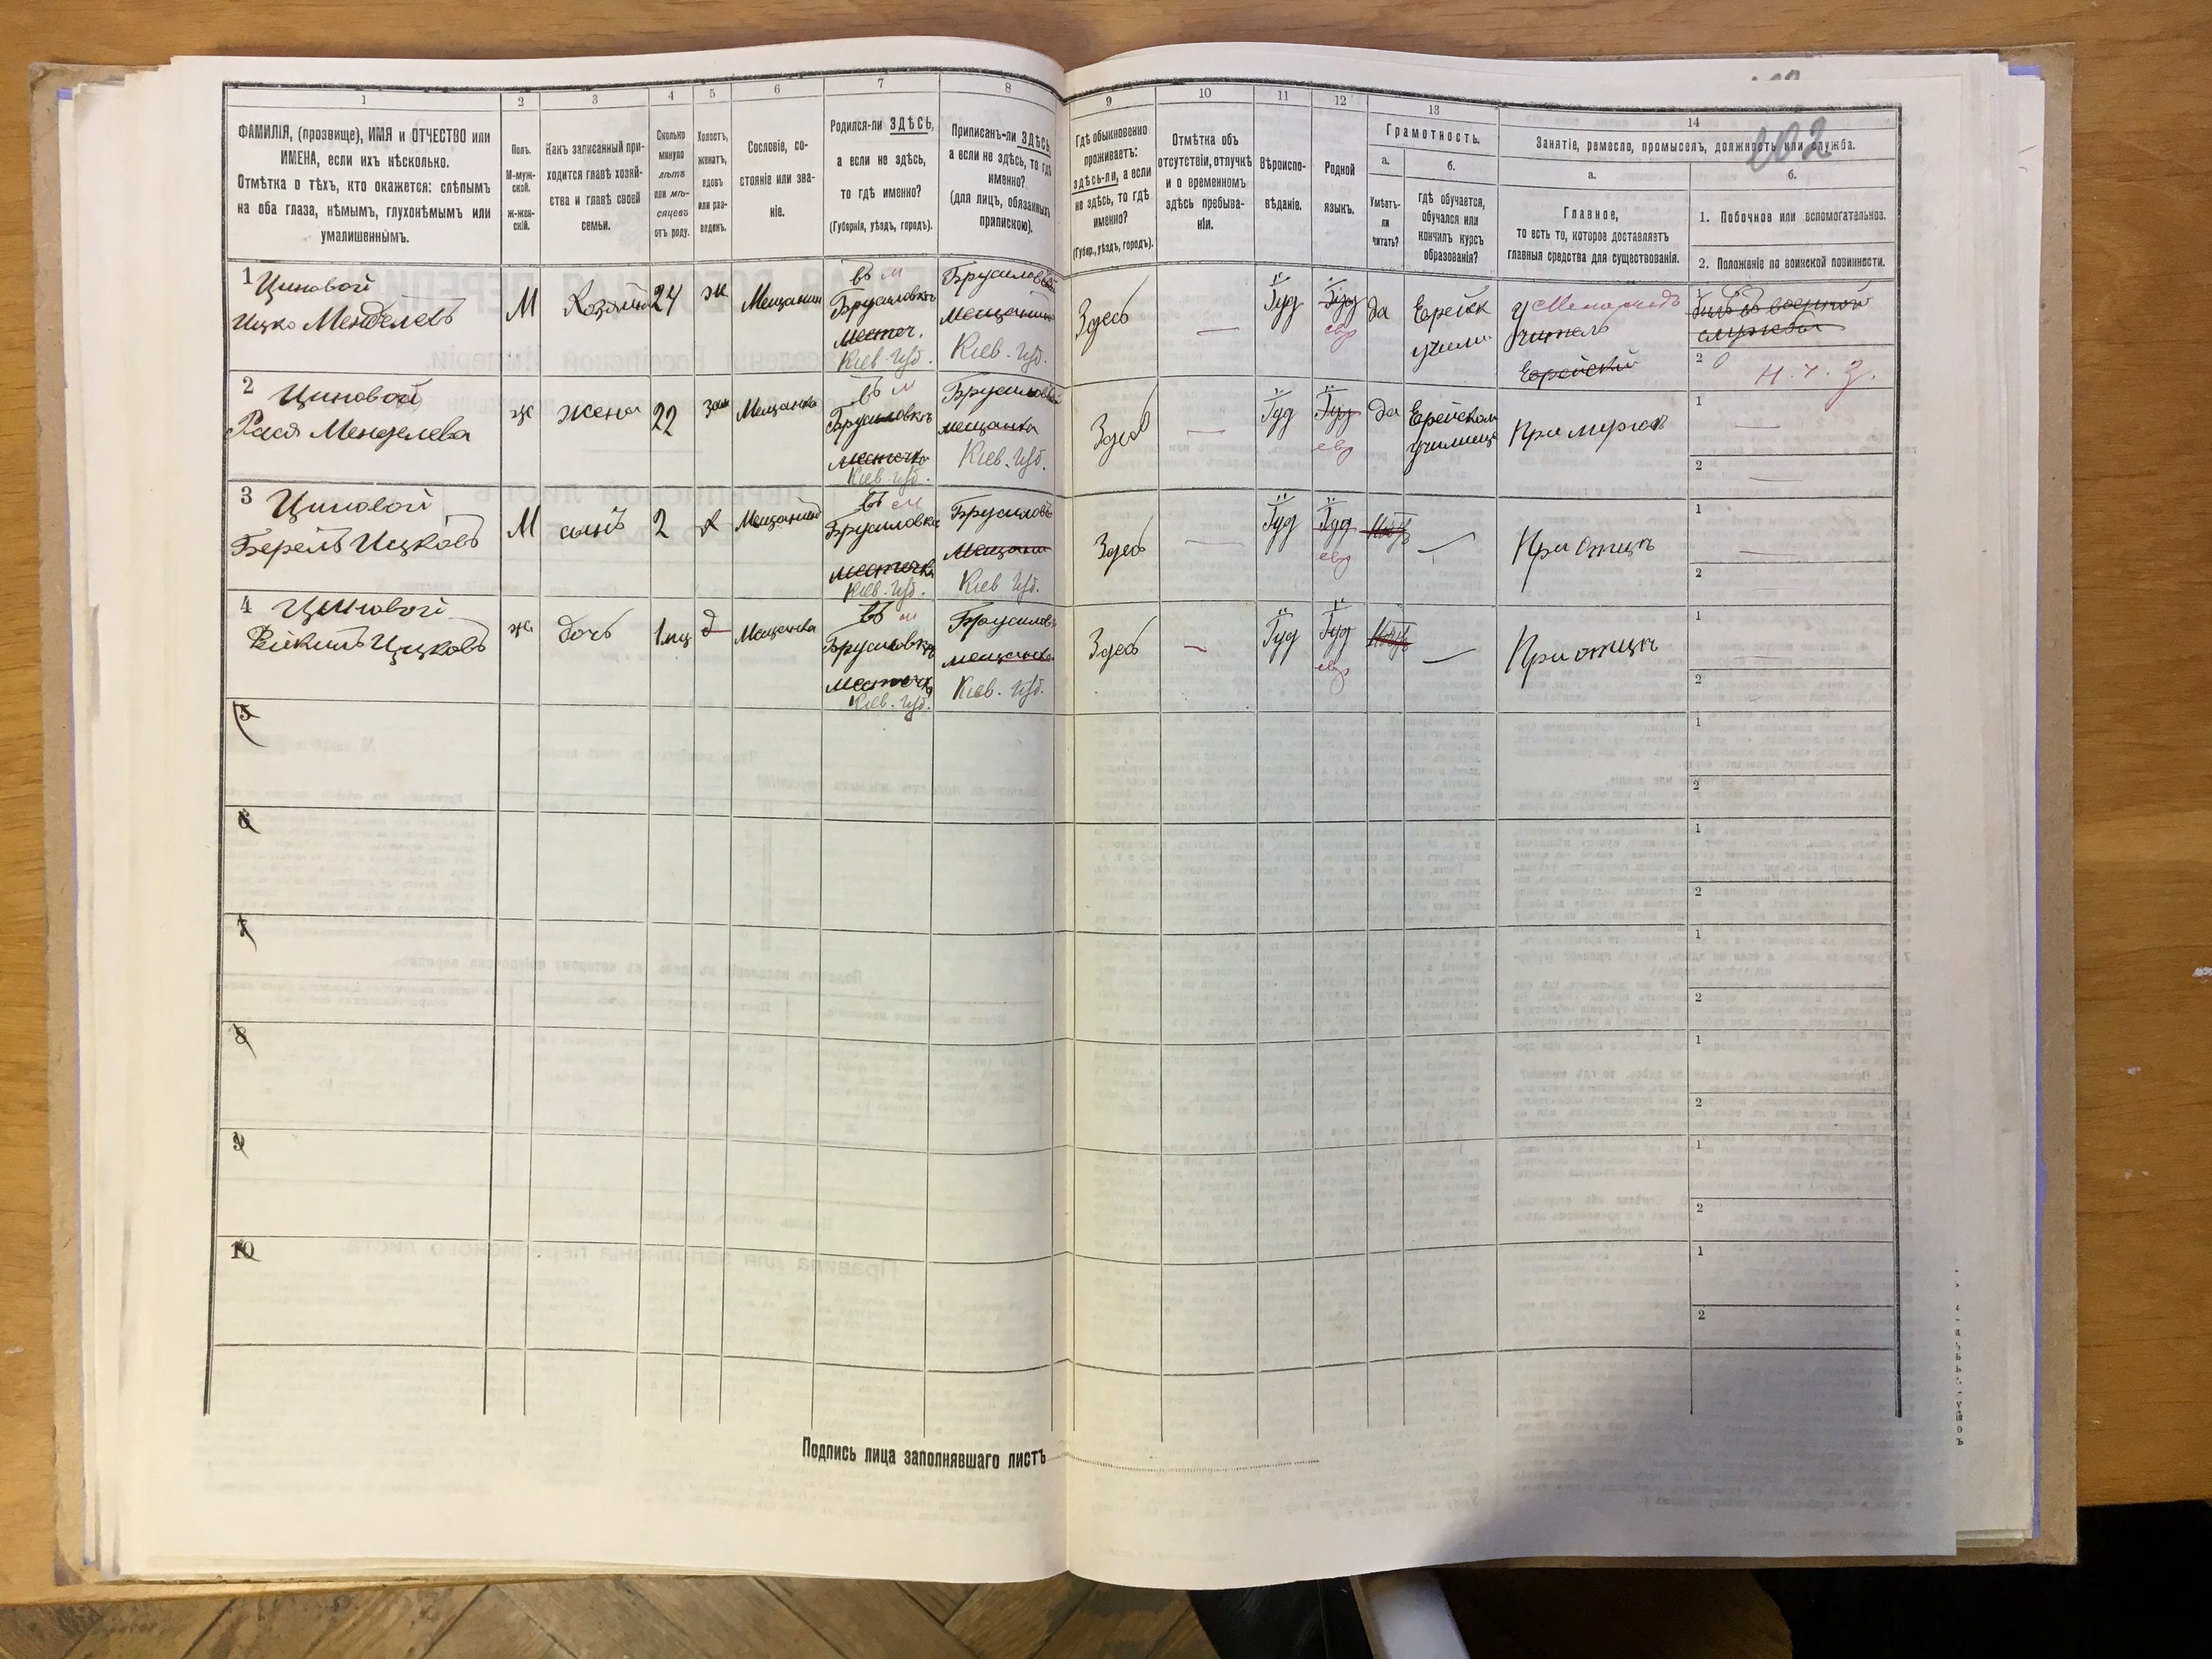 202
1
2
3
4
5
6
7
8
9
10
11
12
13
14
ФАМИЛІЯ, (прозвище), ИМЯ и ОТЧЕСТВО или
ИМЕНА, если ихъ нѣсколько.
Отмѣтка о тѣхъ, кто окажется: слѣпымъ
на оба глаза, нѣмымъ, глухонѣмымъ или
умалишеннымъ.
Полъ.
М-муж-
ской.
Ж-жен-
скій.
Какъ записанный при-
ходится главѣ хозяй-
ства и главѣ своей
семьи.
Сколько
минуло
лѣтъ
или мѣ-
сяцевъ
отъ роду.
Холостъ,
женатъ,
вдовъ
или раз-
веденъ.
Сословіе, со-
стояніе или зва-
ніе.
Родился-ли ЗДѢСЬ,
а если не здѣсь,
то гдѣ именно?
(Губернія, уѣздъ, городъ).
Приписанъ-ли ЗДѢСЬ,
а если не здѣсь, то гдѣ
именно?
(для лицъ, обязанныхъ
припискою).
Гдѣ обыкновенно
проживаетъ:
здѣсь-ли, а если
не здѣсь, то гдѣ
именно?
(Губер., уѣздъ, городъ).
Отмѣтка объ
отсутствіи, отлучкѣ
и о временномъ
здѣсь пребыва-
ніи.
Вѣроиспо-
вѣданіе.
Родной
языкъ.
Грамотность.
а.
Умѣетъ-
ли
читать?
б.
гдѣ обучается,
обучался или
кончилъ курсъ
образованія?
Занятіе, ремесло, промыселъ, должность или служба.
а.
Главное,
то есть то, которое доставляетъ
главныя средства для существованія.
б.
1. Побочное или вспомогательное.
2. Положеніе по воинской повинности.
1 Циновой
Ицко Менделевъ
М
Хозяинъ
24
ж
Мещанин
въ м
Брусиловкъ
местеч.
Кіев. губ.
Брусилов
мещанинъ
Кіев. губ.
Здесь
Іуд
Іуд
евр
да
Еврейск
училе
у Меламедъ
учитель
Еврейский
1
былъ въ военной
службы
2
2 Циновой
Рася Менделева
ж
жена
22
зам
Мещанка
въ м
Брусиловкъ
местечко
Кіев. губ.
Брусилов
мещанка
Кіев. губ.
Здесь
Іуд
Іуд
евр
да
Еврейском
училище
При муркъ
1
2
3 Циновой
Берель Ицковъ
М
сынъ
2
х
Мещанин
въ м
Брусиловка
местечка
Кіев. губ.
Брусиловъ
мещанин
Кіев губ.
Здесь
Іуд
Іуд
евр
При отцѣ
1
2
4 Циновой
Ицковъ
ж
дочь
1 мц
д
Мещанка
въ м
Брусиловкъ
местечко
Кіев. губ.
Брусилов
мещанка
Кіев. губ.
Здесь
Іуд
Іуд
евр
При отцѣ
1
2
5
1
2
6
1
2
7
1
2
8
1
2
9
1
2
10
1
2
Подпись лица заполнявшаго листъ